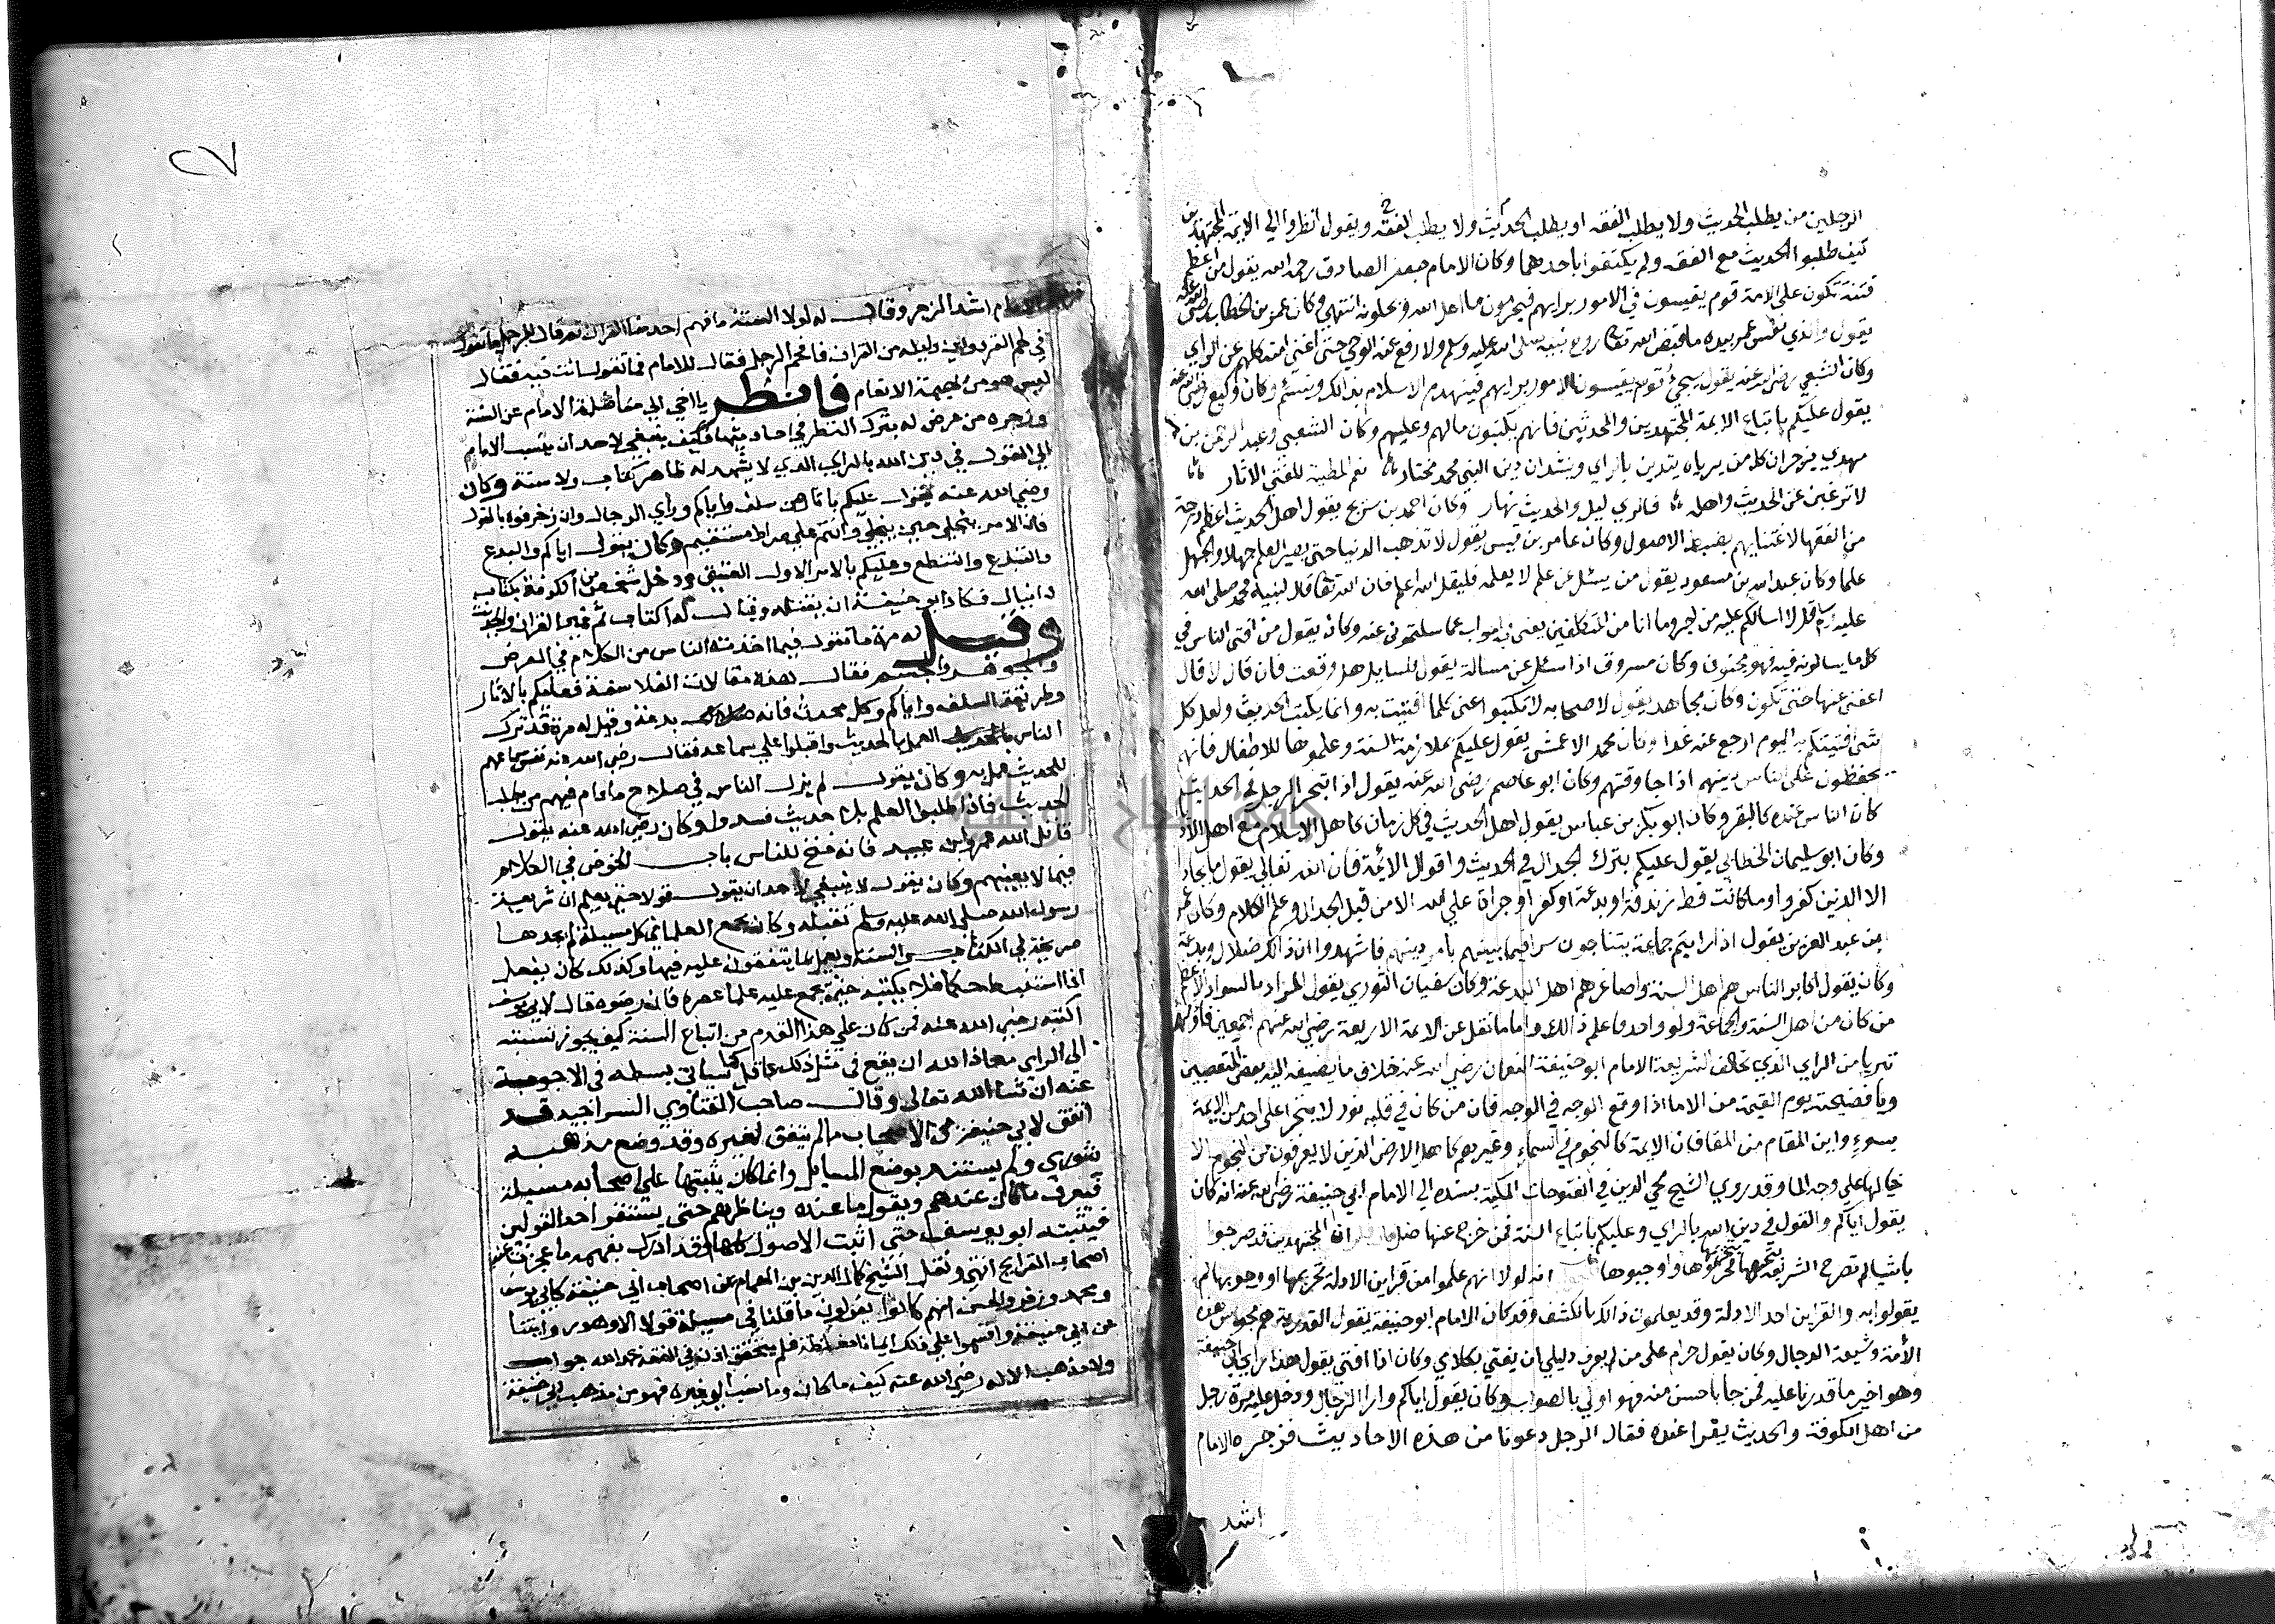 الرجلين من يطلب الحديث ولا يطلب الفقه او يطلب الحديث ولا يطلب الفقه ويقول انظروا الي الايمة المجتهدين
كيف طلبوا الحديث مع الفقه ولم يكتفوا باحدهما وكان الامام جعفر الصادق رحمه الله يقول من اعظم
فتنة تكون علي الامة قوم يقيسون في الامور برايهم فيحرمون ما احل الله ويحلون انتهي وكان عمر بن الخطاب رضي الله عنه
يقول والذي نفس عمر بيده ما قبض الله تعالى روح نبيه صلى الله عليه وسلم ولا رفع عنه الوحي حتى اغني امته كلهم عن الراي
وكان الشعبي رضي الله عنه يقول سيجيء قوم يقيسون الامور برايهم فينهدم الاسلام بذالك وينثلم وكان وكيع رضي الله عنه
يقول عليكم باتباع الايمة المجتهدين والمحدثين فانهم يكتبون مالهم وعليهم وكان الشعبي وعبد الرحمن بن
مهدي يزجران كل من يرياه يتدين بالراي وينشدان دين النبي محمد مختار نعم المطية للفتى الاثار
لا ترغبن عن الحديث واهله فالراي ليل والحديث نهار وكان احمد بن سريج يقول اهل الحديث اعظم درجة
من الفقها لاعتنايهم بضبط الاصول وكان عامر بن قيس يقول لا تذهب الدنيا حتى يصير العلم جهلا والجهل
علما وكان عبد الله بن مسعود يقول من يسئل عن علم لا يعلمه فليقل الله اعلم فان الله تعالى قال لنبيه محمد صلى الله
عليه وسلم قل لا اسالكم عليه من اجر وما انا من المتكلفين يعني في الجواب عما سالتموني عنه وكان يقول من افتى الناس في
كل ما يسالونه فيه فهو مجنون وكان مسروق اذا سئل عن مسالة يقول للسايل هل وقعت فان قال لا قال
اعفني عنها حتى تكون وكان مجاهد يقول لاصحابه لا تكتبوا عني كلما افتيت به وانما يكتب الحديث ولعل كل
شى افتيتكم به اليوم ارجع عنه غدا وكان محمد الاعمش يقول عليكم بملازمة السنة وعلموها للاطفال فانهم
يحفظون على الناس دينهم اذا جا وقتهم وكان ابو عاصم رضي الله عنه يقول اذا تبحر الرجل في الحديث
كان الناس عنده كالبقر وكان ابو بكر بن عياش يقول اهل الحديث في كل زمان كاهل الاسلام مع اهل الاديان
وكان ابو سليمان الخطابي يقول عليكم بترك الجدال في الحديث واقوال الائمة فان الله تعالي يقول ما يجادل
الا الذين كفروا وما كانت قط زندقة او بدعة او كفر او جراة علي الله الا من قبل الجدال وعلم الكلام وكان عمر
بن عبد العزيز يقول اذا رايتم جماعة يتناجون سرا فيما بينهم بامر دينهم فاشهدوا ان ذالك ضلال وبدعة
وكان يقول اكابر الناس هم اهل السنة واصاغرهم اهل البدعة وكان سفيان الثوري يقول المراد بالسواد الاعظم
من كان من اهل السنة والجماعة ولو واحدا فاعلم ذالك واما ما نقل عن الايمة الاربعة رضي الله عنهم اجمعين فاولهم
تبريا من الراي الذي يخالف الشريعة الامام ابو حنيفة النعمان رضي الله عنه خلاف ما يضيفه اليه بعض المتعصبين
ويا فضيحته يوم القيمة من الامام اذا وقع الوجه في الوجه فان من كان في قلبه نور لا يتجرا على احد من الايمة
بسوء واين المقام من المقام فان الايمة كالنجوم في السماء وغيرهم كاهل الارض الذين لا يعرفون من النجوم الا
خيالها علي وجه الما وقد روي الشيخ محي الدين في الفتوحات المكية بسنده الي الامام ابي حنيفة رضي الله عنه انه كان
يقول اياكم والقول في دين الله بالراي وعليكم باتباع السنة فمن خرج عنها ضل فان المجتهدين قد صرحوا
باشيا لم تصرح الشريعة بتحريمها فحرموها واوجبوها انه لولا انهم علموا من قراين الادلة تحريمها او وجوبها لم
يقولوا به والقراين احد الادلة وقد يعلمون ذالك بالكشف وقد كان الامام ابو حنيفة يقول القدرية هم مجوس هذه
الأمة وشيعة الدجال وكان يقول حرام على من لم يعرف دليلي ان يفتي بكلامي وكان اذا افتي يقول هذا راي ابي حنيفة
وهو اخير ما قدرنا عليه فمن جا باحسن منه فهو اولي بالصواب وكان يقول اياكم وارا الرجال ودخل عليه مرة رجل
من اهل الكوفة والحديث يقرا عنده فقال الرجل دعونا من هذه الاحاديث فزجره الامام
اشد
٢٧
اشد الزجر وقال له لولا السنة ما فهم احد منا القران ثم قال للرجل ما تقول
في لحم القرد واين دليله من القران فافحم الرجل فقال للامام فما تقول انت فيه فقال
ليس هو من بهيمة الانعام فانظر يا اخي الي مناضلة الامام عن السنة
وزجره من عرض له بترك النظر في احاديثها فكيف ينبغي لاحد ان ينسب الامام
الي القول في دين الله بالراي الذي لا يشهد له ظاهر كتاب ولا سنة وكان
رضي الله عنه يقول عليكم باثار من سلف واياكم وراي الرجال وان زخرفوه بالقول
فان الامر ينجلي حين ينجلي وانتم علي صراط مستقيم وكان يقول اياكم والبدع
والتبدع والتنطع وعليكم بالامر الاول العتيق ودخل شخص من الكوفة بكتاب
دانيال فكاد ابو حنيفة ان يقتله وقال له اكتاب ثم غير القران والحديث
وقيل له مرة ما تقول فيما احدثه الناس من الكلام في العرض
والجوهر والجسم فقال هذه مقالات الفلاسفة فعليكم بالاثار
وطريقة السلف واياكم وكل محدث فانه بدعة وقيل له مرة قد ترك
الناس العمل بالحديث واقبلوا علي سماعه فقال رضي الله عنه نفس سماعهم
للحديث عمل به وكان يقول لم يزل الناس في صلاح ما دام فيهم من يطلب
الحديث فاذا طلبوا العلم بلا حديث فسدوا وكان رضي الله عنه يقول
قاتل الله عمرو بن عبيد فانه فتح للناس باب الخوض في الكلام
فيما لا يعنيهم وكان يقول لا ينبغي لاحد ان يقول قولا حتى يعلم ان شريعة
رسول الله صلى الله عليه وسلم تقبله وكان يجمع العلما في كل مسيلة لم يجدها
صريحة في الكتاب والسنة ويعمل بما يتفقون عليه فيها وكذلك كان يفعل
اذا استنبط حكما فلا يكتبه حتي يجمع عليه علما عصره فان رضوه قال لابي يوسف
اكتبه رضي الله عنه فمن كان علي هذا القدم من اتباع السنة كيف يجوز نسبته
الي الراي معاذ الله ان يقع في مثل ذلك عاقل كما سياتي بسطه في الاجوبة
عنه ان شا الله تعالى وقال صاحب الفتاوي السراجية قد
اتفق لابي حنيفة من الاصحاب ما لم يتفق لغيره وقد وضع مذهبه
شوري ولم يستند بوضع المسايل وانما كان يثبتها علي اصحابه مسيلة
فيعرف ما كان عندهم ويقول ما عنده ويناظرهم حتى يستقر احد القولين
فيثبته ابو يوسف حتي اثبت الاصول كلها وقد ادرك بفهمه ما عجزت عنه
اصحاب القرايح انتهى ونقل الشيخ كمال الدين بن الهمام عن اصحاب ابي حنيفة كابي يوسف
ومحمد وزفر والحسن انهم كانوا يقولون ما قلنا في مسيلة قولا الا وهو روايتنا
عن ابي حنيفة واقسموا علي ذلك ايمانا مغلظة فلم يتحقق اذن في الفقه بحمد الله جواب
ولا مذهب الا له رضي الله عنه كيف ما كان وما نسب الي غيره فهو من مذهب ابي حنيفة